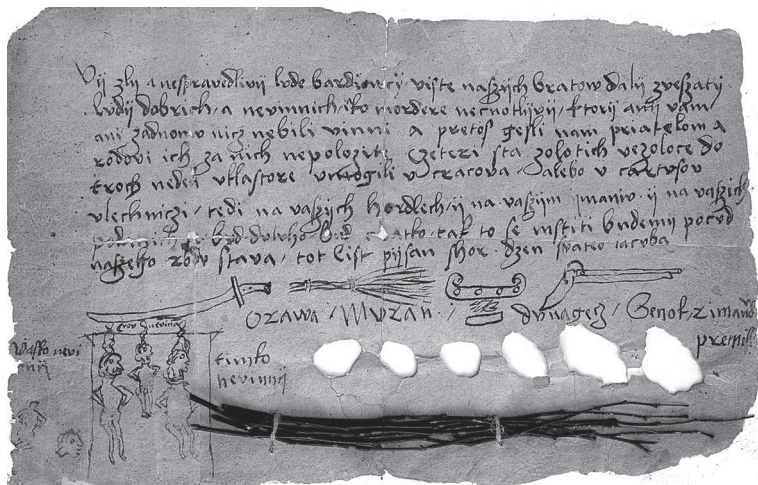 Vij zli a nespravedlivij lvde bardiowcij viste naszijch bratow dali zveszatij
lvdij dobrich, a nevinnich, iko mordere necnotlivij, ktorij anij vam
ani zadnomv nicz nebili vinni a pretos gesli nam priatelom a
rodovi ich za nich nepolozite czeteri sta zolotich vezoloce do
troch nedeli v klastore v mogili v Cracova albo v cartusov
v lechniczi, tedi na vaszijch hordlech, ij na vaszijm imaniv ij na vaszich
bvd dvlho bvd tak to se mstiti bvdemij pocvd
naszeho rodv stava, tot list pijsan dzen svateo iacvba
Orawa, Mvran, dvnagecz, Senok, z imanow
premisl
Wasko nevinnij
timko
nevinnij